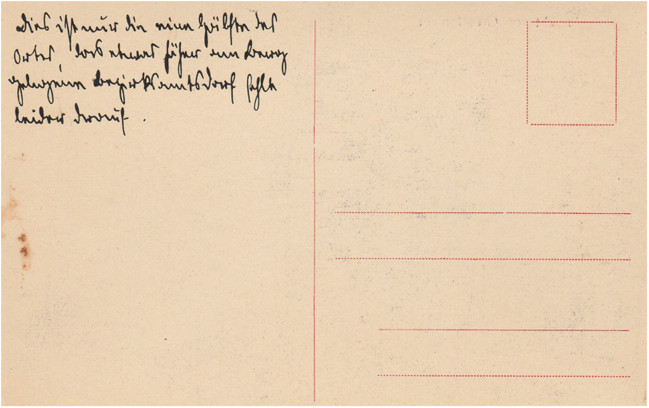 Dies ist nur die eine Hälfte des
Ortes, das etwas höher am Berg
gelegene Bezirksamtsdorf fehlt
leider darauf.